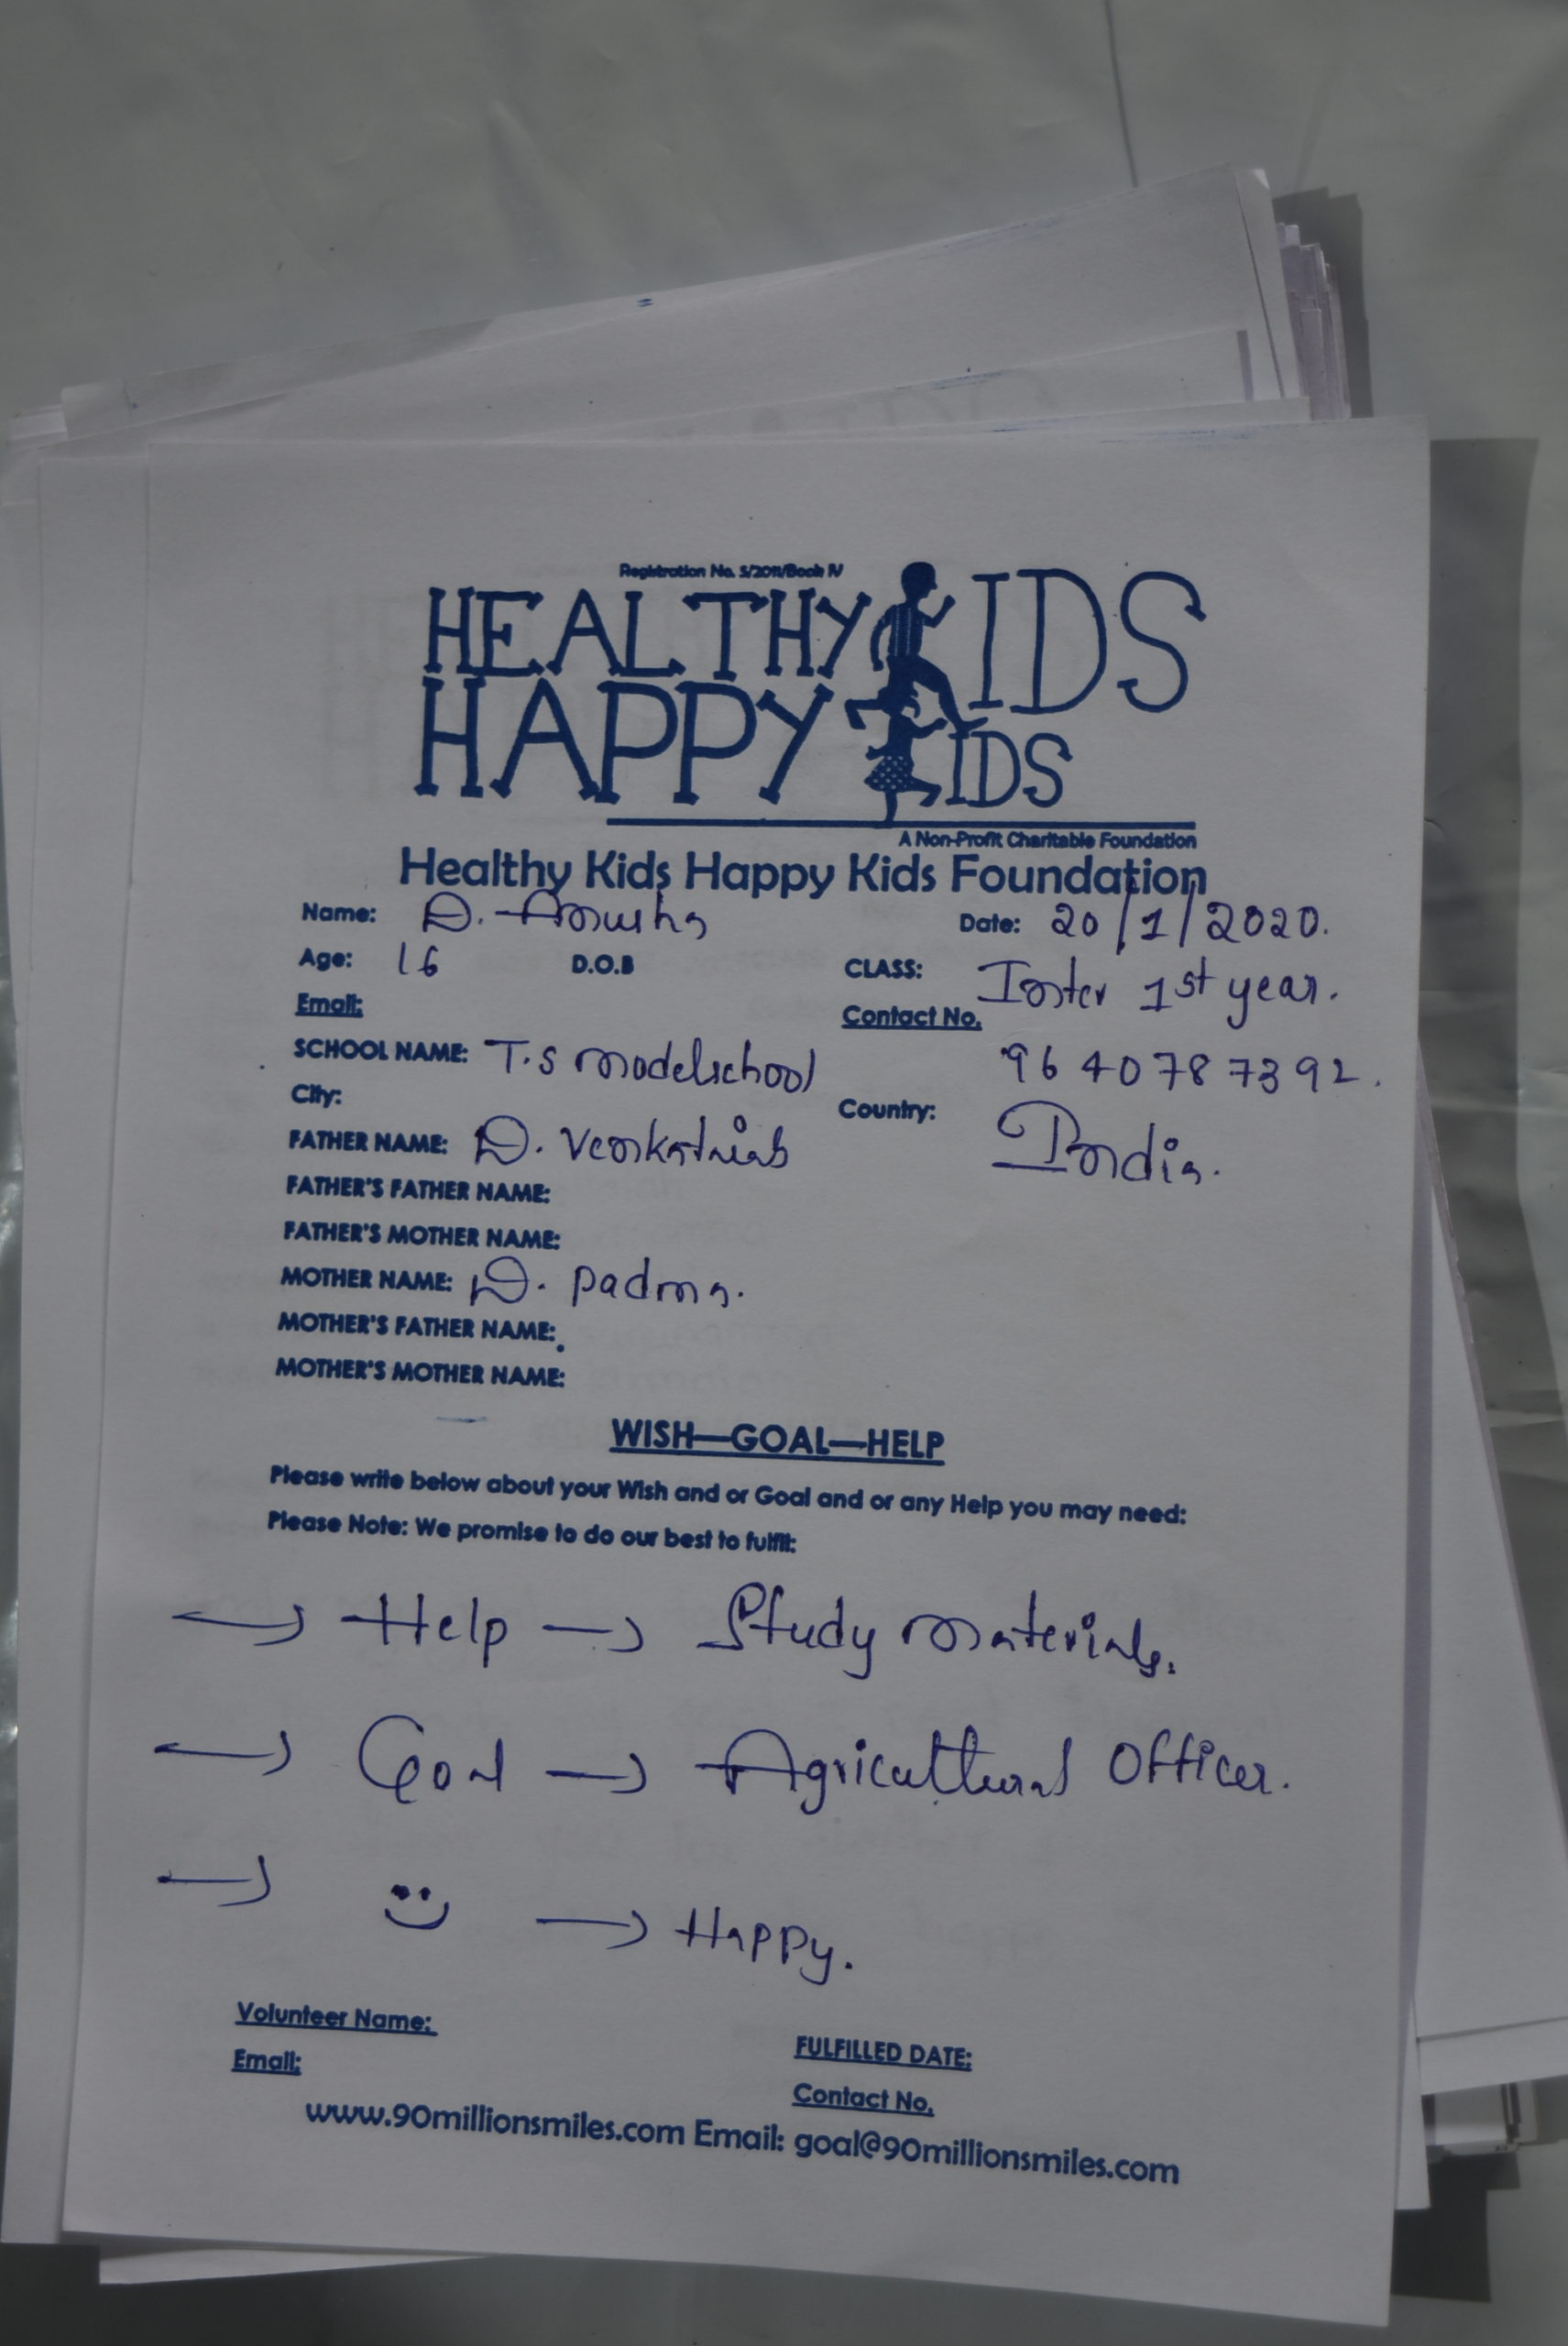 Registration No. 5/2011/Book IV
HEALTHY KIDS
HAPPY KIDS
A Non-Profit Charitable Foundation
Healthy Kids Happy Kids Foundation
Name: D. Anusha Date: 20/1/2020.
Age: 16 D.O.B CLASS: Inter 1st year.
Email: Contact No.
SCHOOL NAME: T.S modelschool 9640787392.
City: Country: India.
FATHER NAME: D.
FATHER'S FATHER NAME:
FATHER'S MOTHER NAME:
MOTHER NAME: D. Padma.
MOTHER'S FATHER NAME:
MOTHER'S MOTHER NAME:
WISH—GOAL—HELP
Please write below about your Wish and or Goal and or any Help you may need:
Please Note: We promise to do our best to fulfil:
→ Help → Study materials.
→ Goal → Agricultural Officer.
→ → Happy.
Volunteer Name: FULFILLED DATE:
Email: Contact No.
www.90millionsmiles.com Email: goal@90millionsmiles.com